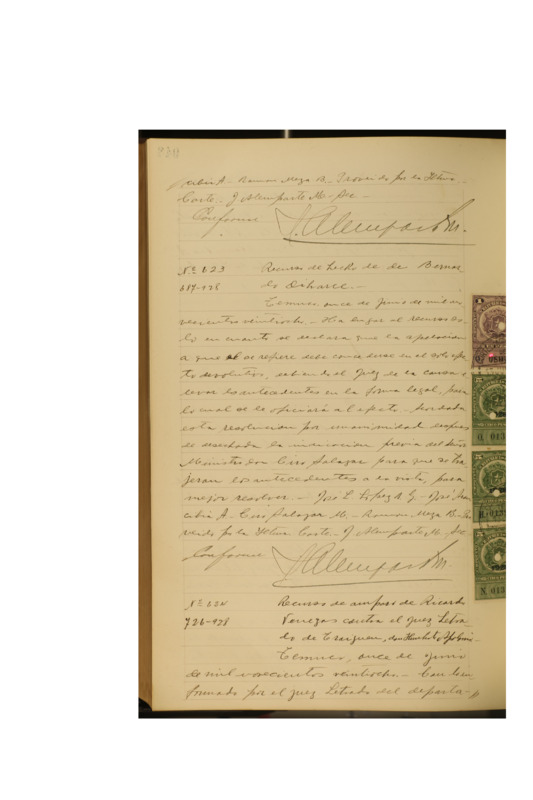 cubia A.- Ramon Meza B.- Proveido por la Iltma.
Corte.- J Alemparte M. Sec.-
Conforme
J. Alemparte M.
Nº 123 Recurso de hecho de Bernar
617-928 do
Temuco, once de Junio de mil no
vecientos veintiocho.- Ha lugar al recurso so
lo en cuanto se declara que la apelacion
a que se refiere debe concederse en el solo efec
to devolutivo, debiendo el Juez de la causa e
levar los antecedentes en la forma legal, para
lo cual se le oficiará al efecto.- Acordada
esta resolucion por unanimidad despues
de desechada la indicacion previa del Señor
Ministro don Ciro Salazar para que se tra
jeran los antecedentes a la vista, para
mejor resolver.- José L Lopez A G.- José Ara
cubia A.- Ciro Salazar M.- Ramon Meza B.- Pro
veido por la Iltma Corte.- J Alemparte M. Sec
Conforme
J. Alemparte M.
Nº 124 Recurso de amparo de Ricardo
726-928 Venegas contra el Juez Letra
do de Traiguen,
Temuco, once de Junio
de mil novecientos veintiocho.- Con lo in
formado por el Juez Letrado del departa-